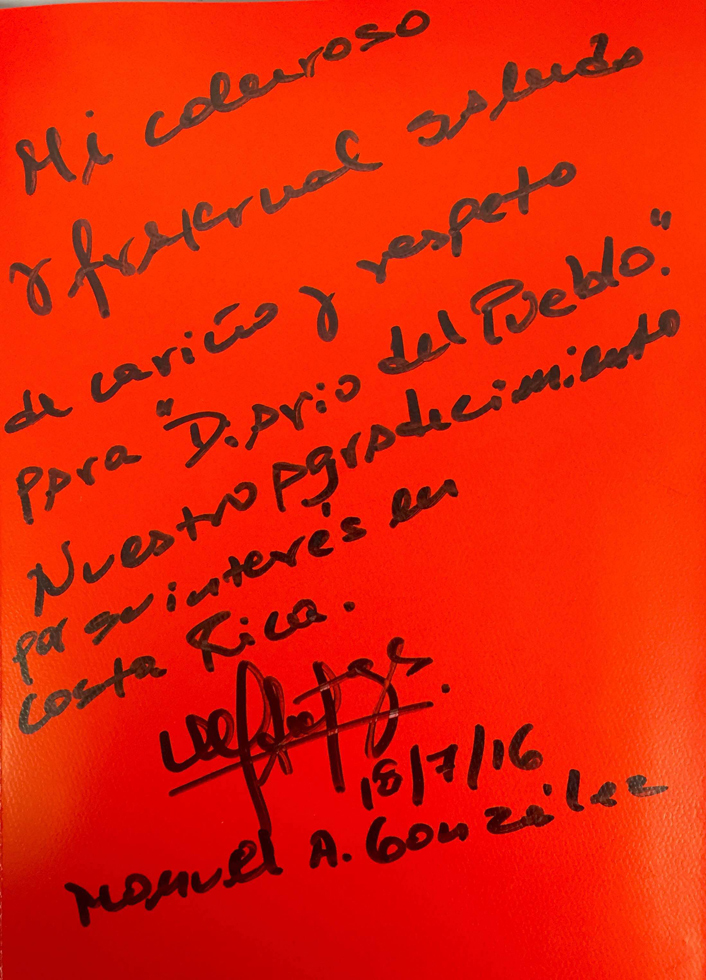 Mi caluroso
y fraternal saludo
de cariño y respeto
para "Diario del Pueblo."
Nuestro agradecimiento
por su interés en
Costa Rica.
18/7/16
Manuel A. González